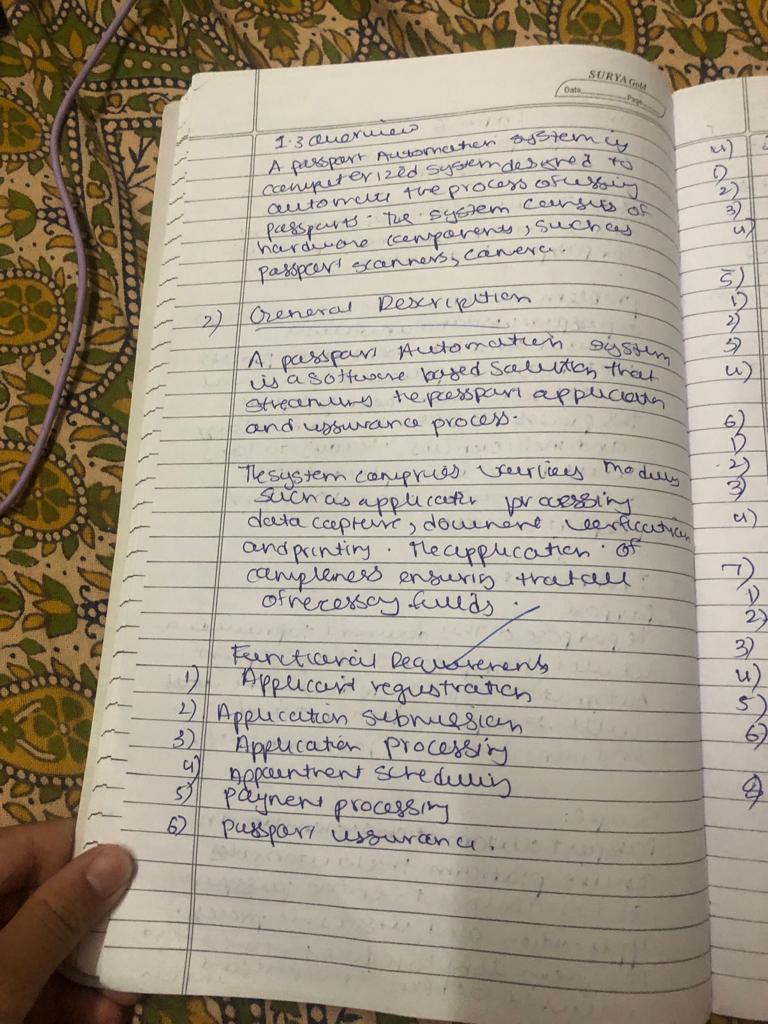 SURYA Gold
Date Page
1.3 overview
A passport Automation system is
computerized system designed to
automate the process of issuing
passports. The system consists of
hardware components, such as
passport scanners, camera.
2) General Description
A passport Automation system
is a software based solution that
streamlins the passport application
and issurance process.
The system comprises various modules
such as application processing
data capture, document verification
and printing. The application of
completness ensuring that all
of necessary fields.
Functional Requirements
1) Applicant registration
2) Application submission
3) Application processing
4) Appointment scheduling
5) payment processing
6) passport issurance.
4)
1)
2)
3)
4)
5)
1)
2)
3)
4)
6)
1)
2)
3)
4)
7)
1)
2)
3)
4)
5)
6)